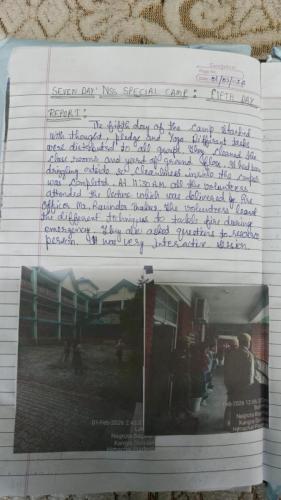 Page No.
Date: 01/02/26
SEVEN DAY NSS SPECIAL CAMP: FIFTH DAY
REPORT:
The fifth day of the camp started
with thought, pledge and Yoga. Different tasks
were distributed to all group. They cleaned the
class rooms and yard of ground floor. It had been
drizzling outside so cleanliness inside the campus
was completed. At 11:30 A.M. all the volunteers
attended the lecture which was delivered by fire
officer Mr. The volunteers learnt
the different techniques to tackle fire during
emergency. They also asked questions to resource
person. It was very interactive session.
01-Feb-2026 2:4
Nagrota
Kangra
Himachal Pradesh
Feb-2026 12:0
Nagrota
Kangra
Himachal Pradesh